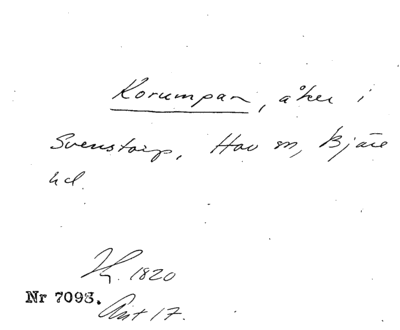 Korumpan, åker i
Svenstorp, Hov sn, Bjäre
hd.
Hg. 1820
Nr 7093.
Akt 17.